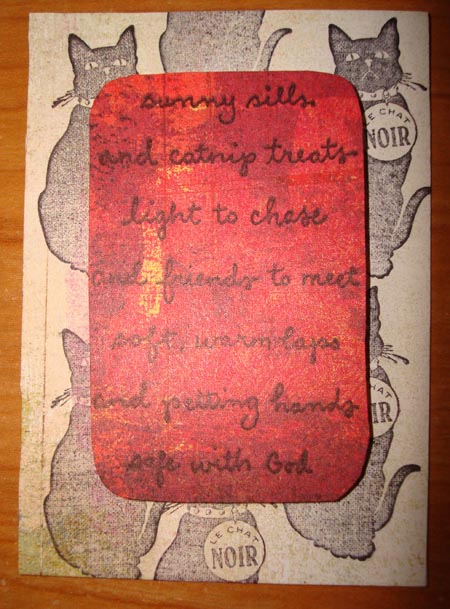 sunny sills
and catnip treats
light to chase
and friends to meet
soft, warm laps
and petting hands
safe with God
LE CHAT
NOIR
CHAT
IR
LE CHAT
NOIR